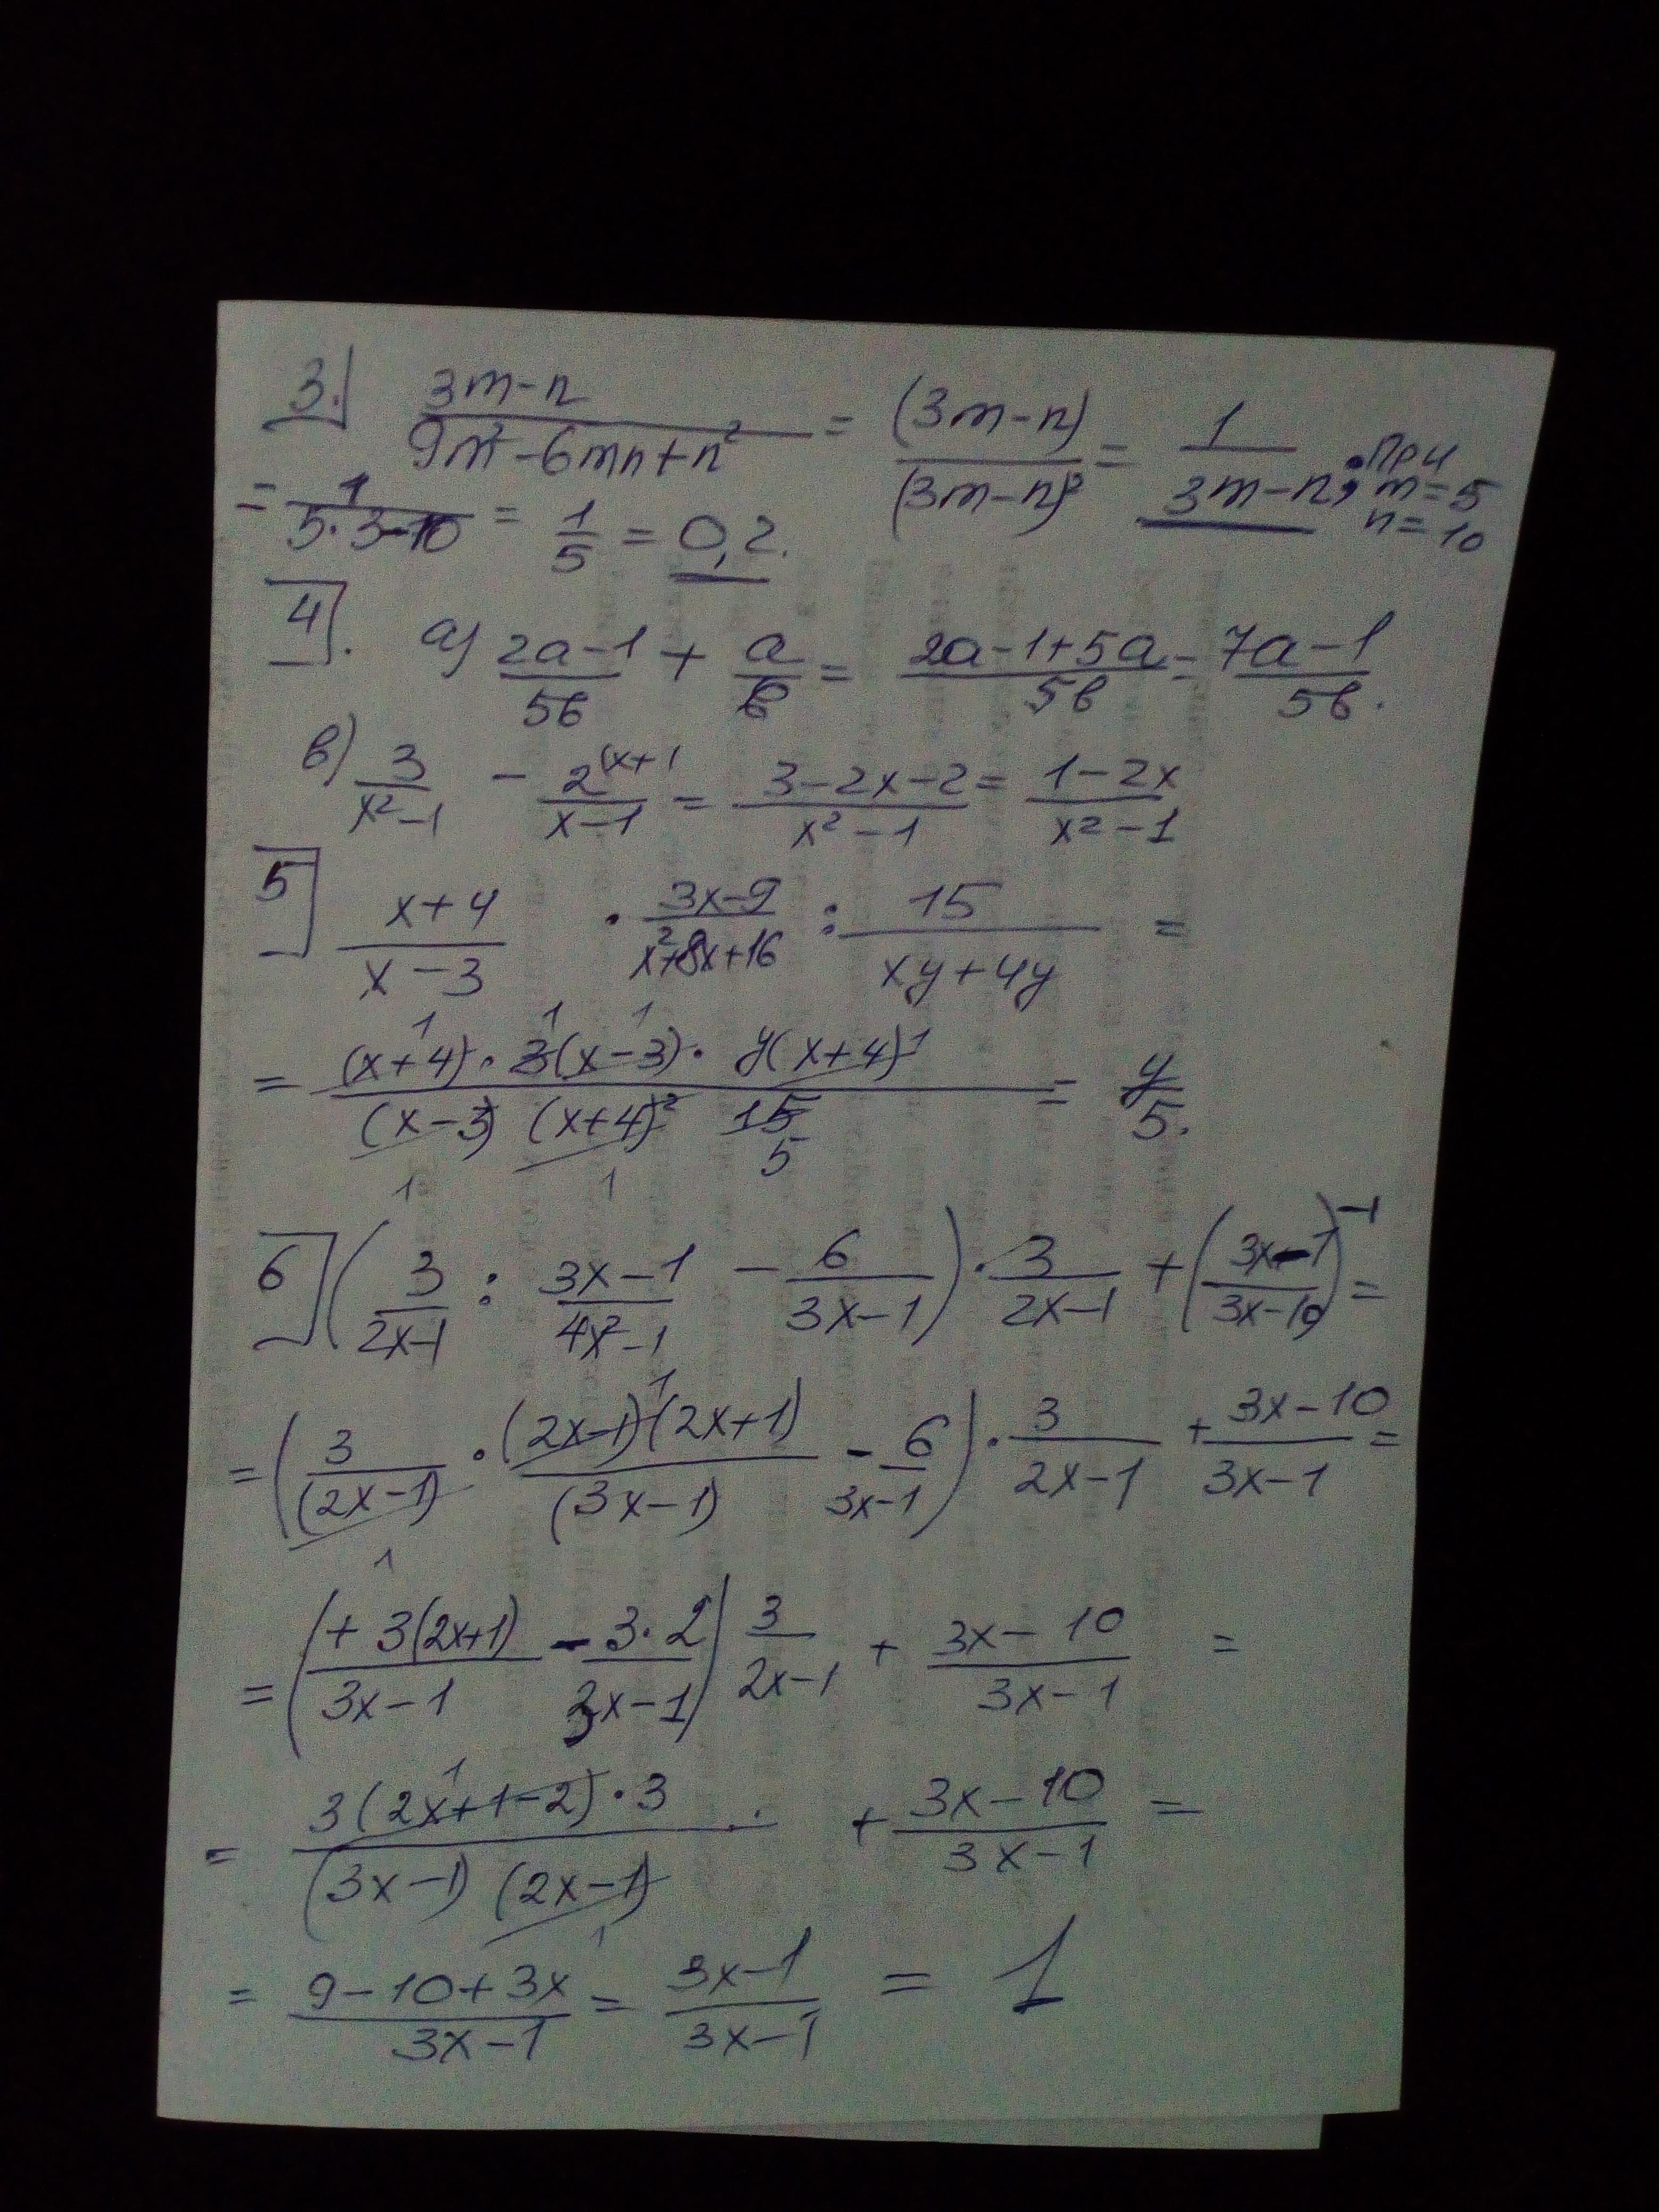 3. (3m-n)/(9m²-6mn+n²) = (3m-n)/(3m-n)² = 1/(3m-n); При m=5 n=10
= 1/(5·3-10) = 1/5 = 0,2.
4. а) (2a-1)/5b + a/b = (2a-1+5a)/5b = (7a-1)/5b.
в) 3/(x²-1) - 2^(x+1/(x-1) = (3-2x-2)/(x²-1) = (1-2x)/(x²-1)
5 (x+4)/(x-3) · (3x-9)/(x²+8x+16) : 15/(xy+4y) =
1 1 1
= ((x+4)·3(x-3)·y(x+4) 1)/((x-3)(x+4)² 15) = y/5.
5
1 1
6 (3/(2x-1) : (3x-1)/(4x²-1) - 6/(3x-1)) · 3/(2x-1) + ((3x-1)/(3x-10))⁻¹ =
1
= (3/(2x-1) · (2x-1)(2x+1)/(3x-1) - 6/(3x-1)) · 3/(2x-1) + (3x-10)/(3x-1) =
1
= (+3(2x+1)/(3x-1) - 3·2/(3x-1)) 3/(2x-1) + (3x-10)/(3x-1) =
1
= 3(2x+1-2)·3/((3x-1)(2x-1)) + (3x-10)/(3x-1) =
1
= (9-10+3x)/(3x-1) = (3x-1)/(3x-1) = 1